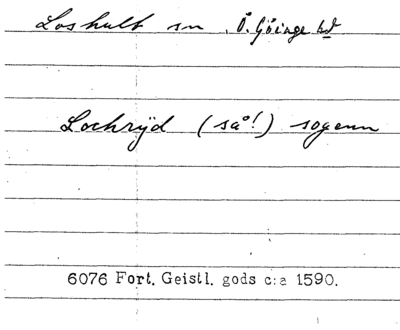 Loshult sn Ö. Göinge hd
Lochrÿd (så!) sogenn
6076 Fort. Geistl. gods c:a 1590.